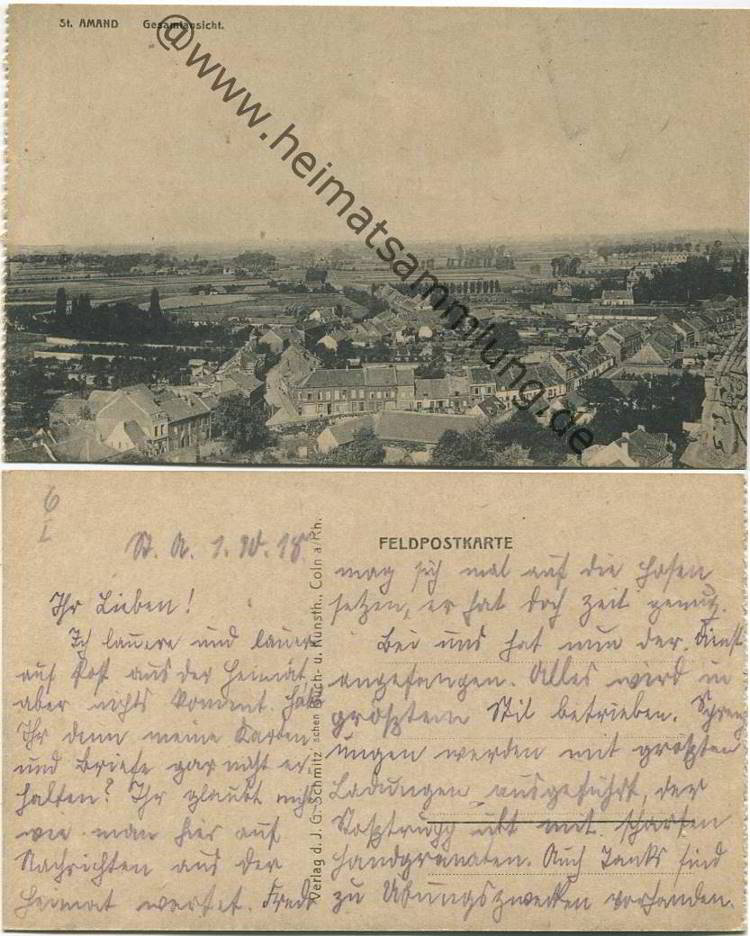 St. AMAND Gesamtansicht.
@www.heimatsammlung.de
6
I
FELDPOSTKARTE
Verlag d. J. G. Schmitz'schen Buch- u. Kunsth., Cöln a/Rh.
St. A. 1. 10. 18
Ihr Lieben!
Ich lauere und lauere
auf Post aus der Heimat,
aber nichts kommt. Habt
Ihr denn meine Karten
und Briefe gar nicht er-
halten? Ihr glaubt nicht
wie man hier auf
Nachrichten aus der
Heimat wartet. Fredi
mag sich mal auf die Hosen
setzen, er hat doch Zeit genug.
Bei uns hat nun der Dienst
angefangen. Alles wird in
größtem Stil betrieben. Spreng-
ungen werden mit größten
Ladungen ausgeführt, der
Stoßtrupp übt mit scharfen
Handgranaten. Auch Tanks sind
zu Übungszwecken vorhanden.